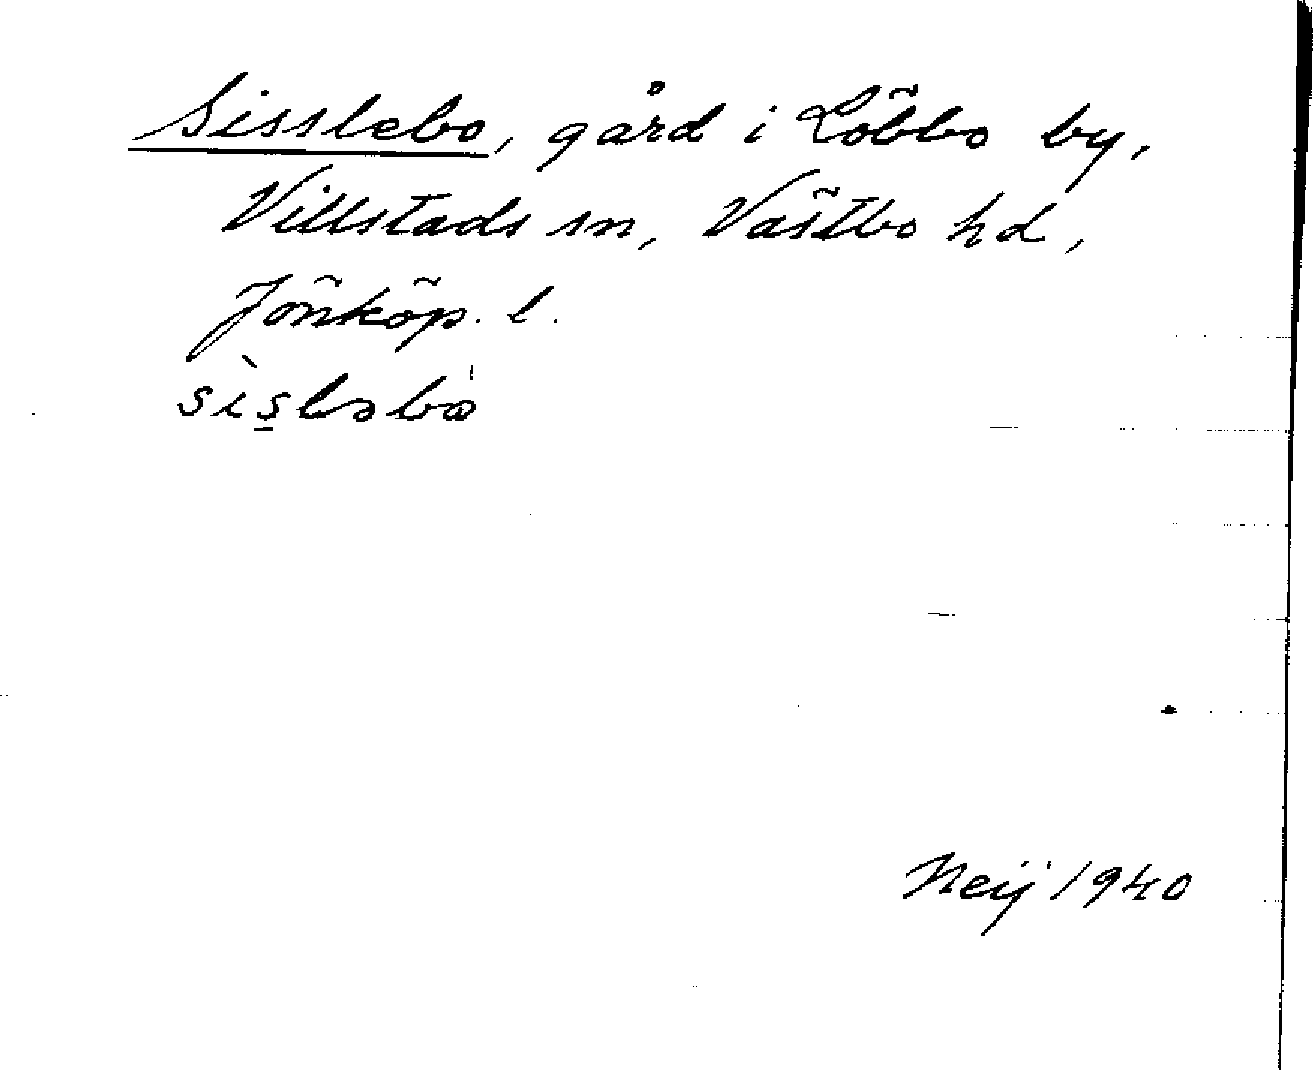 Sisslebo, gård i Löbbo by,
Villstads sn, Västbo hd,
Jönköp. l.
sìsləbo
Neij 1940